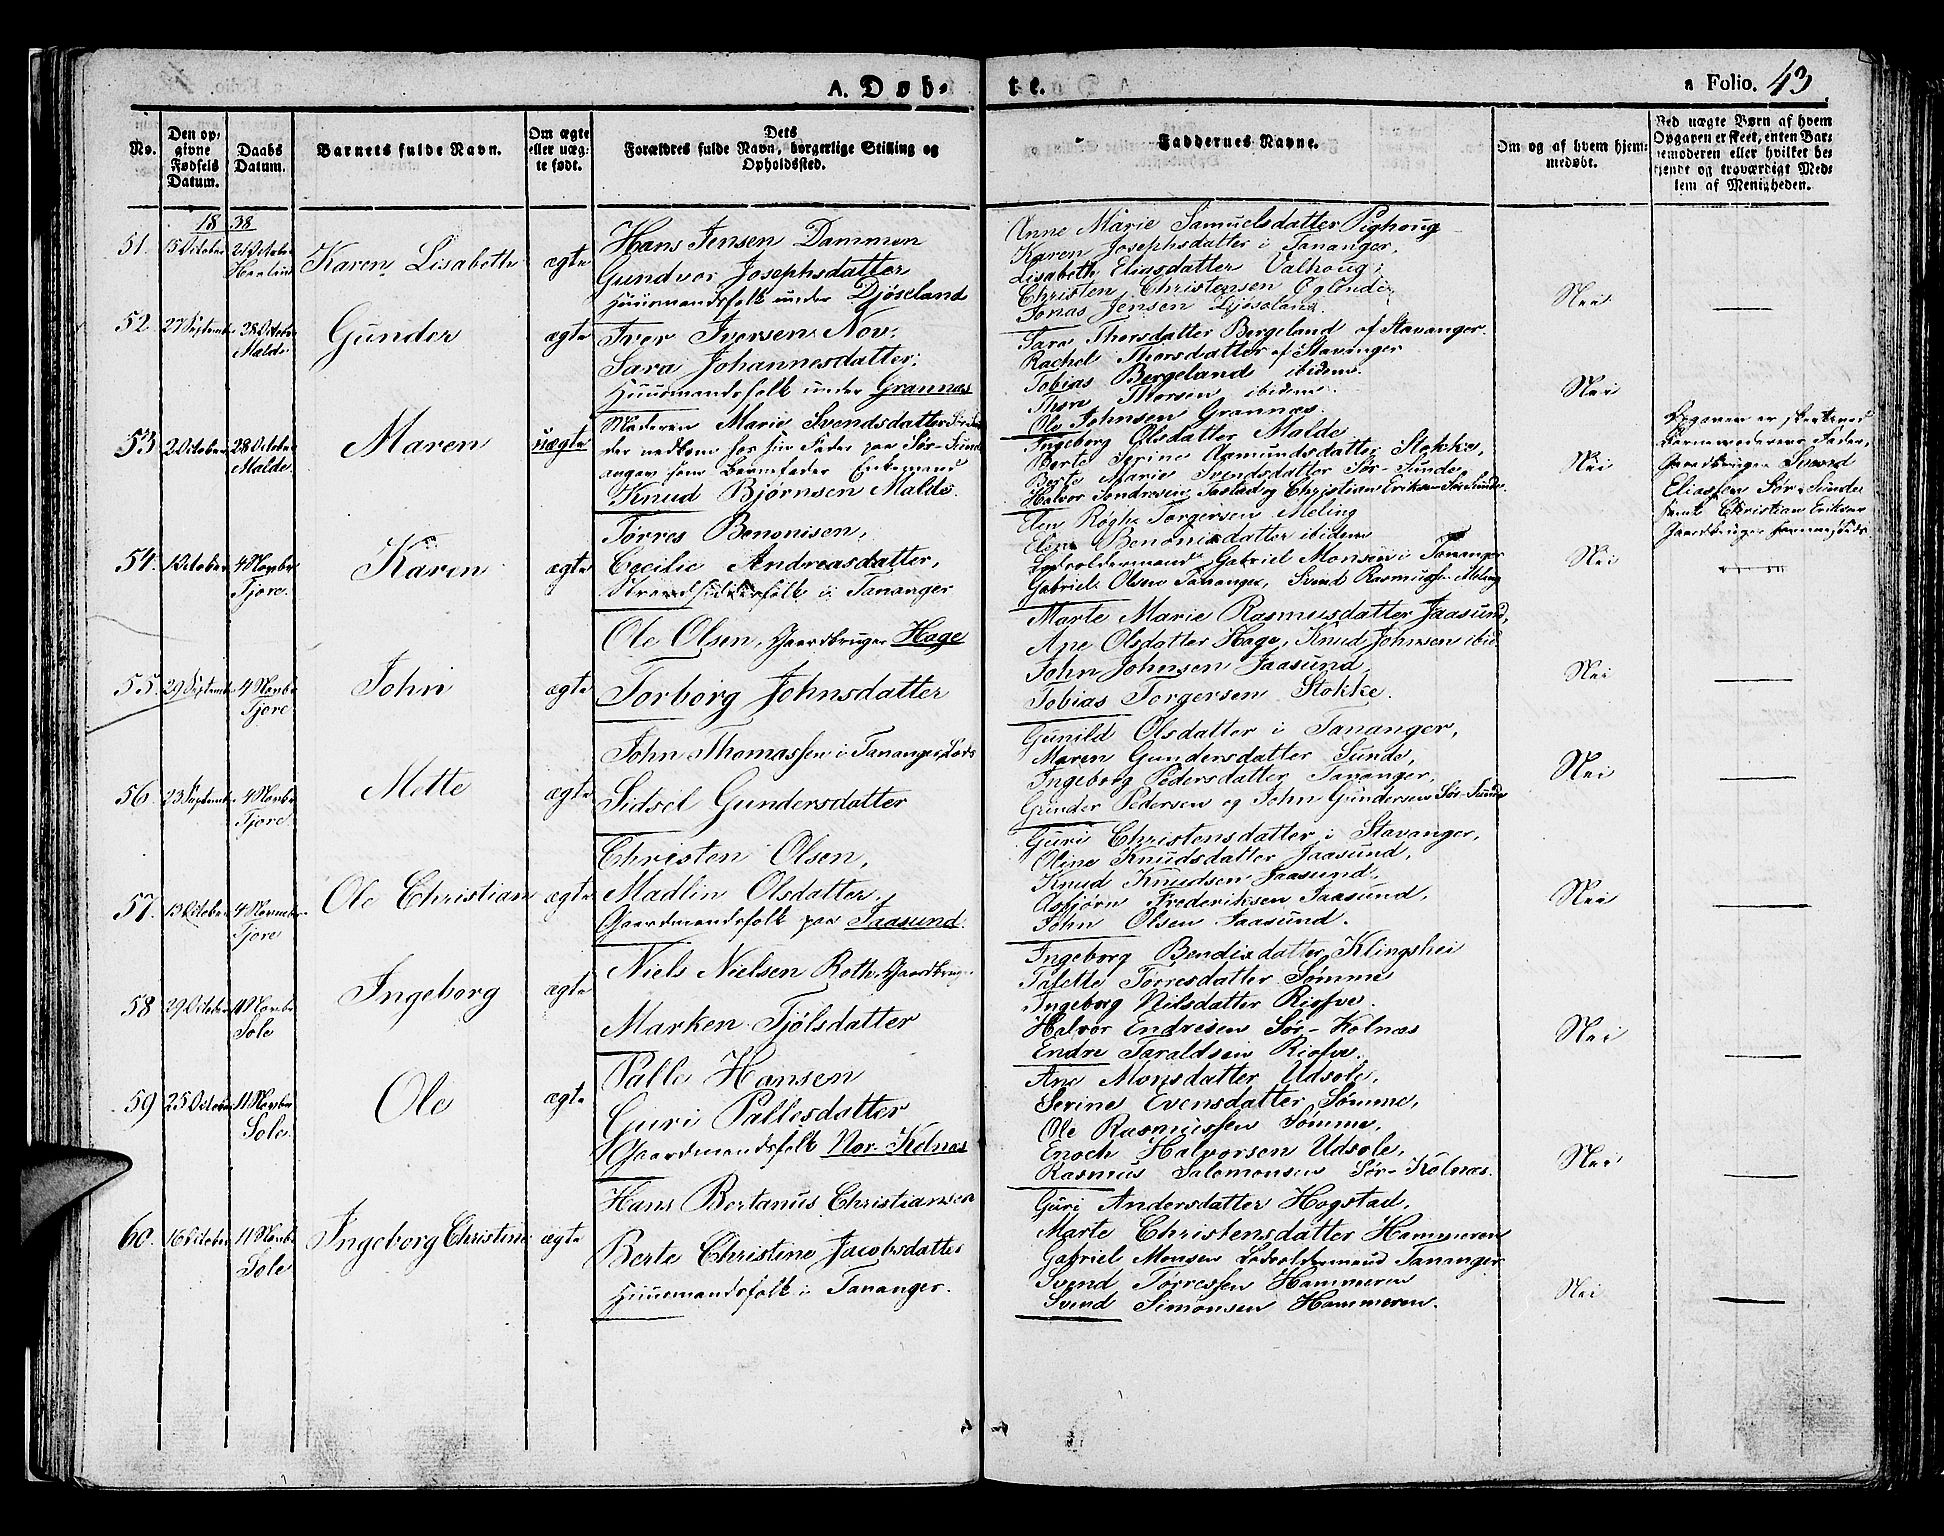 A. Døb-
te.
a Folio. 43
No.
Den opgivne Fødsels Datum.
Daabs Datum.
Barnets fulde Navn.
Om ægte eller uægte født.
Dets Forældres fulde Navn, borgerlige Stilling og Opholdssted.
Faddernes Navne.
Om og af hvem hjemmedøbt.
Ved uægte Børn af hvem Opgaven er skeet, enten Barnemoderen eller hvilket bekjendt og troværdigt Medlem af Menigheden.
18 38
51. 15 October 21 October
Karen Lisabeth ægte
Hans Jensen Dammen
Gundvor Josephsdatter
Huusmandsfolk under Djøseland
Anne Marie Samuelsdatter
Karen Josephsdatter i Tananger,
Lisabeth Eliasdatter Valhoug;
Christen Christensen
Jonas Jensen Djøseland
Nei
52. 27 Septembr 28 October Malde
Gunder ægte
Iver Iversen Nov.
Sara Johannesdatter;
Huusmandsfolk under Grannæs
Sara Thorsdatter Bergeland af Stavanger.
Rachel Thorsdatter af Stavanger
Tobias Bergeland ibidem
Thor Thorsen ibidem.
Ole Johnsen Grannæs.
Nei
53 2 October 28 October Malde.
Maren uægte
Moderen Marie Svendsdatter
der nedkom hos sin Fader paa Sør-Sunde
angav som Barnefader Enkemand
Knud Bjørnsen Malde.
Ingeborg Olsdatter Malde
Berte Serine Aamundsdatter Stokke,
Berte Marie Svendsdatter Sør-Sunde,
Halvor Sondresen Tastad og Christian Eriksen Sør Sunde.
Nei
Opgaven er skeet ved
Barnemoderens Fader,
Gaardbruger Svend
Eliassen Sør-Sunde
samt Christian Eriksen
Gaardbruger sammesteds
54. 1 October 4 Novbr Tjore.
Karen ægte
Tørres Bononisen,
Cecilie Andreasdatter,
Strandsidderfolk i Tananger
Elen Røgh Torgersen Meling
Elen Bononisdatter ibidem
Lodsoldermand Gabriel Monsen i Tananger
Gabriel Olsen Tananger, Svend Rasmussen Meling
Nei
55. 29 Septembr 4 Novbr Tjore
John ægte
Ole Olsen, Gaardbruger Hage
Torborg Johnsdatter
Marte Marie Rasmusdatter Jaasund,
Ane Olsdatter Hage, Knud Johnsen ibid.
John Johnsen Jaasund
Tobias Torgersen Stokke.
Nei
56. 23 Septembr 4 Novbr Tjore
Mette ægte
John Thomassen i Tananger, Lods
Sidsel Gundersdatter
Gunild Olsdatter i Tananger,
Maren Gundersdatter Sunde,
Ingeborg Pedersdatter Tananger,
Gunder Pedersen og John Gundersen Sør-Sunde
Nei
57. 13 October 4 November Tjore
Ole Christian ægte
Christen Olsen,
Madlin Olsdatter,
Gaardmandsfolk paa Jaasund.
Guri Christensdatter i Stavanger,
Oline Knudsdatter Jaasund,
Knud Knudsen Jaasund,
Asbjørn Frederiksen Jaasund,
John Olsen Jaasund.
Nei
58 29 October 11 Novbr Sole
Ingeborg ægte
Niels Nielsen Roth, Gaardbruger
Marken Tjølsdatter
Ingeborg Bendixdatter Klingshei
Talette Tørresdatter Sømme
Ingeborg Nilsdatter Risfve.
Halvor Endresen Sør-Kolnæs
Endre Taraldsen Risfve.
Nei
59 25 October 11 Novbr Sole.
Ole ægte
Palle Hansen
Guri Pallesdatter
Gaardmandsfolk Nor-Kolnæs
Ane Monsdatter Udsole,
Serine Evensdatter Sømme,
Ole Rasmussen Sømme,
Enoch Halvorsen Udsole,
Rasmus Salomonsen Sør-Kolnæs.
Nei
60. 16 October 11 Novbr Sole
Ingeborg Christine ægte
Hans Bertanus Christiansen
Berte Christine Jacobsdatter
Huusmandsfolk i Tananger.
Guri Andersdatter Hogstad,
Marte Christensdatter Hammeren
Gabriel Monsen Lodsoldermand Tananger
Svend Tørressen Hammeren
Svend Simonsen Hammeren.
Nei